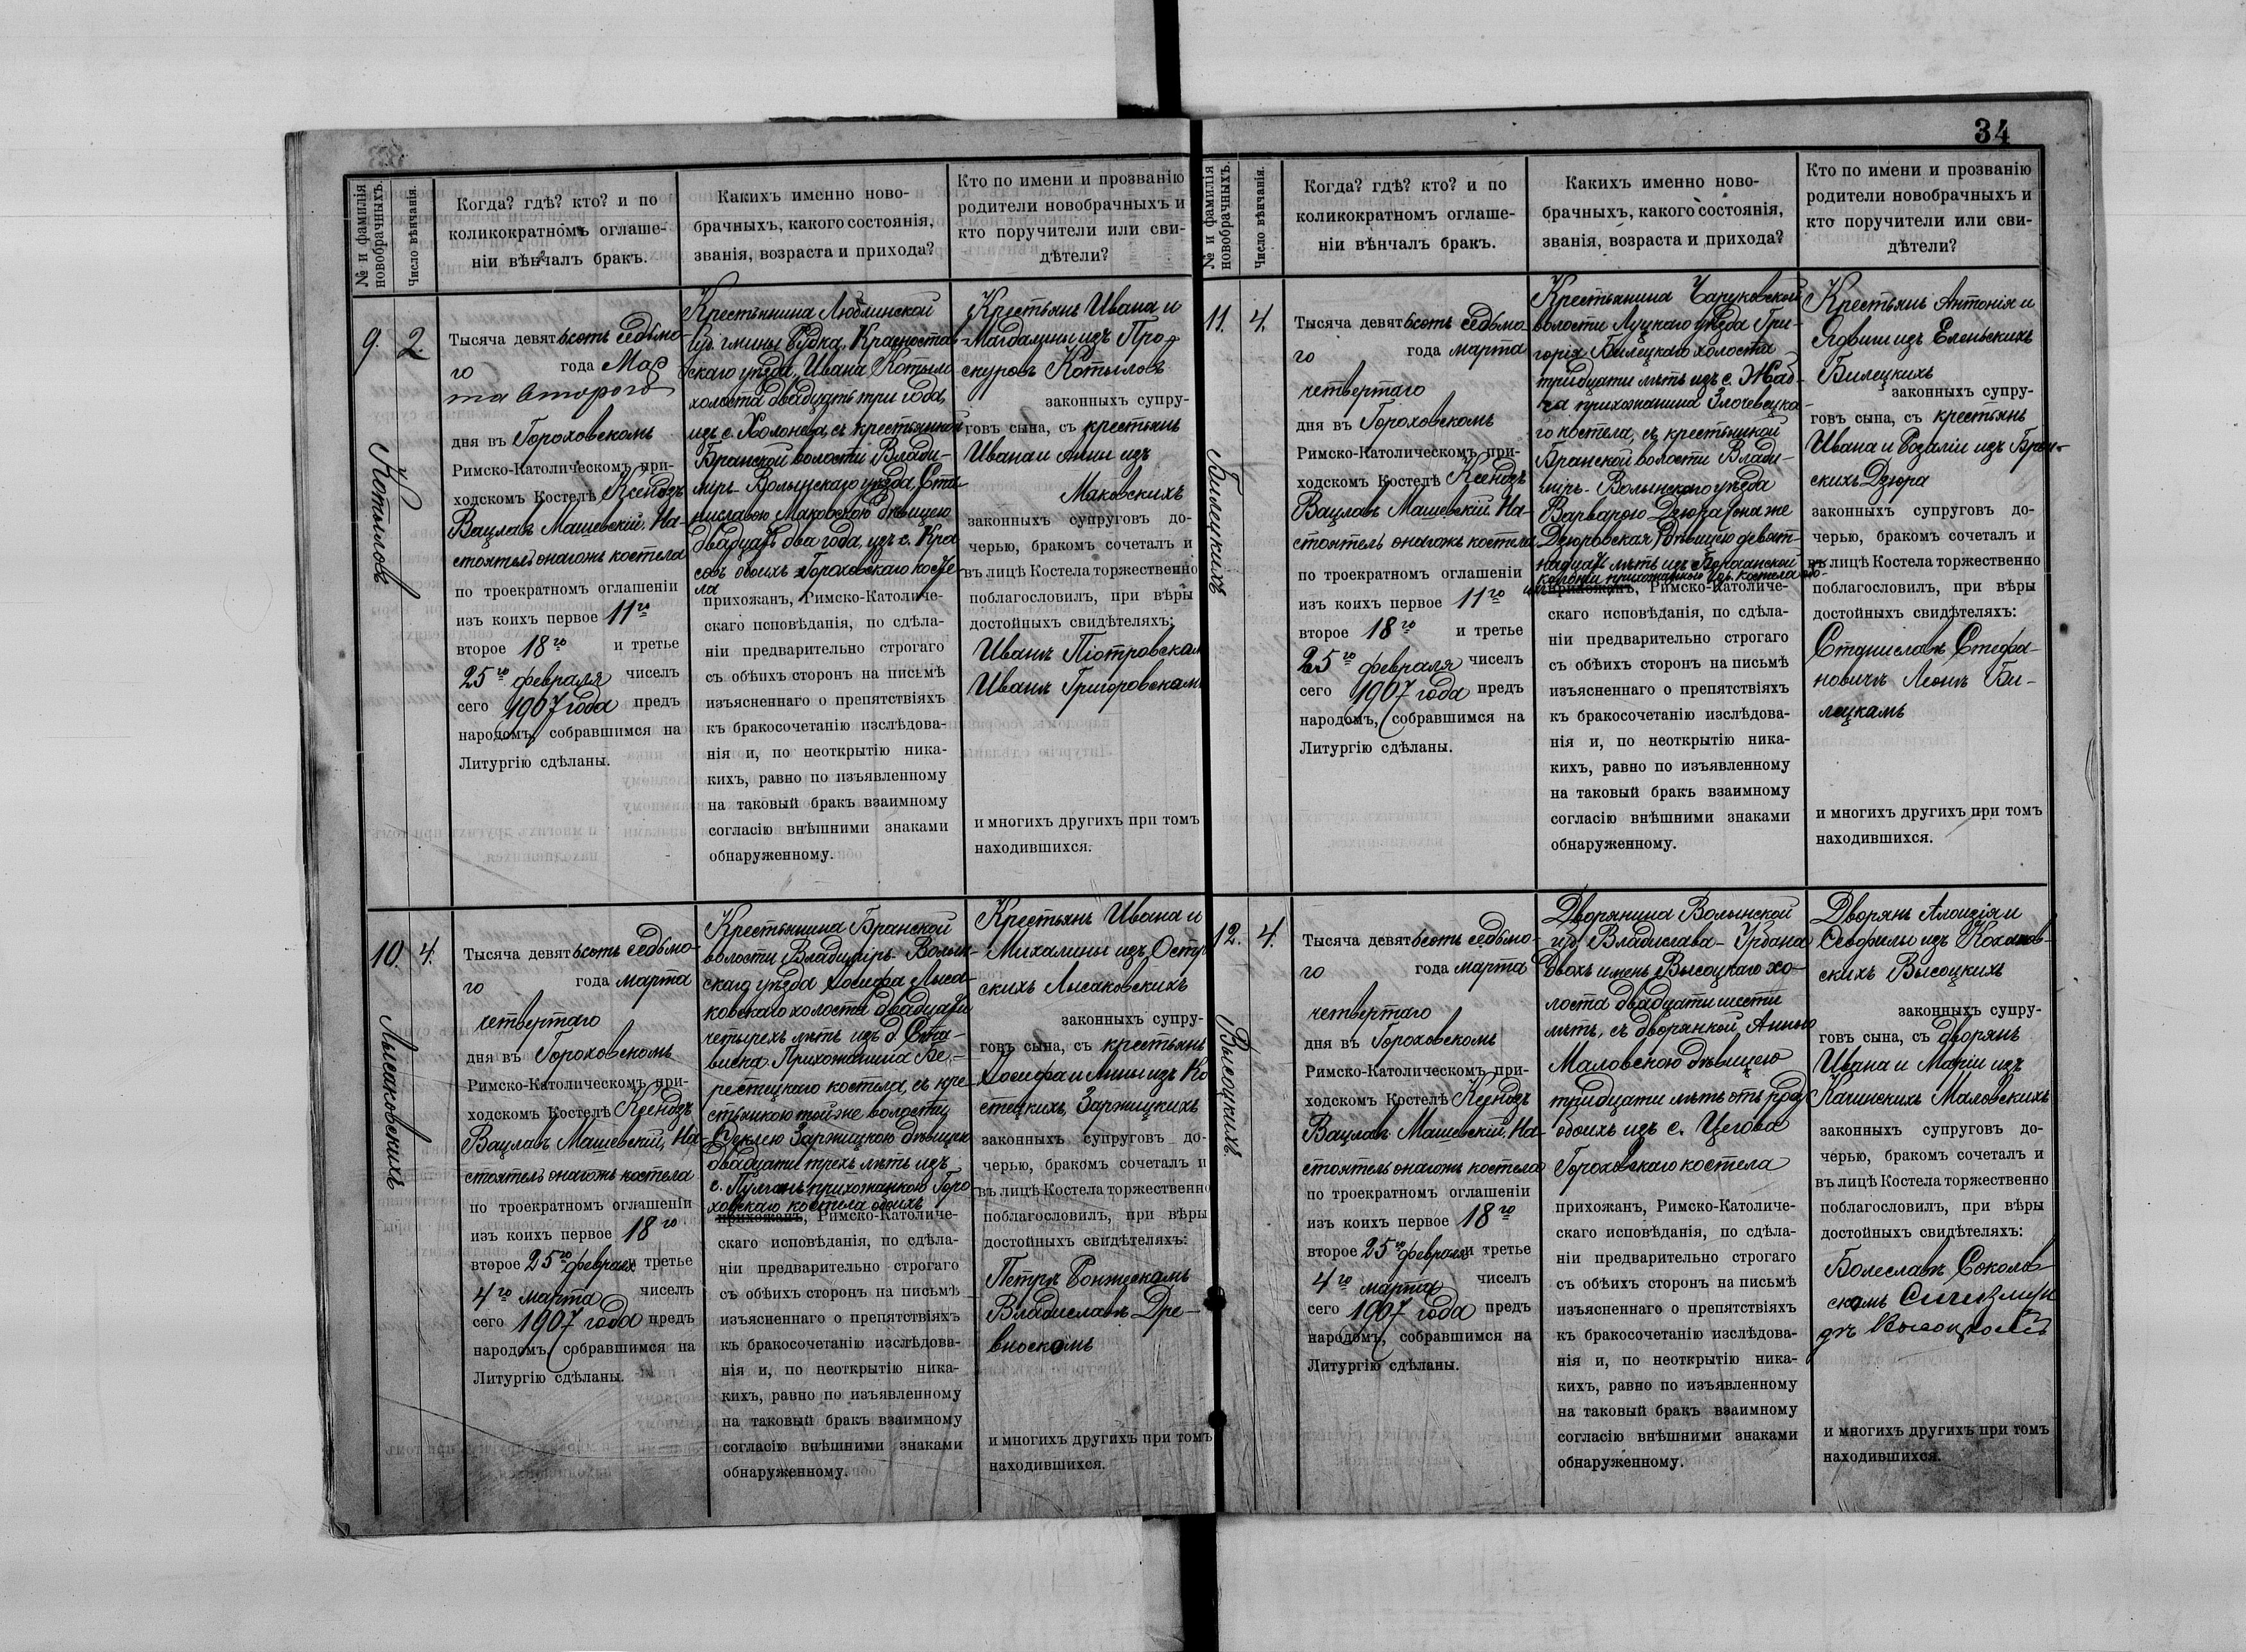 34
№ и фамилія новобрачныхъ.
Число вѣнчанія.
Когда? гдѣ? кто? и по
коликократномъ оглаше-
ніи вѣнчалъ бракъ.
Какихъ именно ново-
брачныхъ, какого состоянія,
званія, возраста и прихода?
Кто по имени и прозванію
родители новобрачныхъ и
кто поручители или сви-
дѣтели?
9.
2.
Котыловъ
Тысяча девятьсотъ седьмо-
го года Мар
та второго
дня въ Гороховскомъ
Римско-Католическомъ при-
ходскомъ Костелѣ Ксендзъ
Вацлавъ Машевскій, На-
стоятель онагожъ костела
по троекратномъ оглашеніи
изъ коихъ первое 11го
второе 18го и третье
25го февраля чиселъ
сего 1907 года предъ
народомъ, собравшимся на
Литургію сдѣланы.
Крестьянина Люблинской
губ. гмины Рудка, Красностав-
скаго уѣзда, Ивана Котыла
холоста двадцать три года,
изъ с. Холонева, съ крестьянкой
Бранской волости Влади-
міръ-Волынскаго уѣзда, Ста-
ниславою Маковскою дѣвицею
двадцать два года, изъ с. Кра
совъ обоихъ Гороховскаго косте-
ла
прихожанъ, Римско-Католиче-
скаго исповѣданія, по сдѣла-
ніи предварительно строгаго
съ обѣихъ сторонъ на письмѣ
изъясненнаго о препятствіяхъ
къ бракосочетанію изслѣдова-
нія и, по неоткрытію ника-
кихъ, равно по изъявленному
на таковый бракъ взаимному
согласію внѣшними знаками
обнаруженному.
Крестьянъ Ивана и
Магдалины изъ Про-
скуровъ Котыловъ
законныхъ супру-
говъ сына, съ крестьянъ
Ивана и Анны изъ
Маковскихъ
законныхъ супруговъ до-
черью, бракомъ сочеталъ и
въ лицѣ Костела торжественно
поблагословилъ, при вѣры
достойныхъ свидѣтеляхъ:
Иванъ Піотровскамъ
Иванъ Григоровскамъ
и многихъ другихъ при томъ
находившихся.
10.
4.
Лысаковскихъ
Тысяча девятьсотъ седьмо-
го года марта
четвертаго
дня въ Гороховскомъ
Римско-Католическомъ при-
ходскомъ Костелѣ Ксендзъ
Вацлавъ Машевскій, На-
стоятель онагожъ костела
по троекратномъ оглашеніи
изъ коихъ первое 18го
второе 25го февраля и третье
4го марта чиселъ
сего 1907 года предъ
народомъ, собравшимся на
Литургію сдѣланы.
Крестьянина Бранской
волости Владиміръ-Волын-
скаго уѣзда Іосифа Лыса-
ковскаго холоста двадцати
четырехъ лѣтъ изъ д. Ста-
виска. Прихожанина Бе-
рестецкаго костела, съ кре-
стьянкою тойже волости
Феклею Заржицкою дѣвицею
двадцати трехъ лѣтъ изъ
с. Пулганъ прихожанкою Горо
ховскаго костела обоихъ
прихожанъ, Римско-Католиче-
скаго исповѣданія, по сдѣла-
ніи предварительно строгаго
съ обѣихъ сторонъ на письмѣ
изъясненнаго о препятствіяхъ
къ бракосочетанію изслѣдова-
нія и, по неоткрытію ника-
кихъ, равно по изъявленному
на таковый бракъ взаимному
согласію внѣшними знаками
обнаруженному.
Крестьянъ Ивана и
Михалины изъ Остр
скихъ Лысаковскихъ
законныхъ супру-
говъ сына, съ крестьянъ
Іосифа и Анны изъ Ко
стецкихъ Заржицкихъ
законныхъ супруговъ до-
черью, бракомъ сочеталъ и
въ лицѣ Костела торжественно
поблагословилъ, при вѣры
достойныхъ свидѣтеляхъ:
Петръ Ронжескамъ
Владиславъ Дре-
вноскомъ
и многихъ другихъ при томъ
находившихся.
№ и фамилія новобрачныхъ.
Число вѣнчанія.
Когда? гдѣ? кто? и по
коликократномъ оглаше-
ніи вѣнчалъ бракъ.
Какихъ именно ново-
брачныхъ, какого состоянія,
званія, возраста и прихода?
Кто по имени и прозванію
родители новобрачныхъ и
кто поручители или сви-
дѣтели?
11.
4.
Билецкихъ
Тысяча девятьсотъ седьмо
го года марта
четвертаго
дня въ Гороховскомъ
Римско-Католическомъ при-
ходскомъ Костелѣ Ксендзъ
Вацлавъ Машевскій, На-
стоятель онагожъ костела
по троекратномъ оглашеніи
изъ коихъ первое 11го
второе 18го и третье
25го февраля чиселъ
сего 1907 года предъ
народомъ, собравшимся на
Литургію сдѣланы.
Крестьянина Чаруковской
волости Луцкаго уѣзда Гри-
горія Билецкаго холоста
тридцати лѣтъ изъ с. Жаб-
ча прихожанина Злочевецка-
го костела, съ крестьянкой
Бранской волости Влади-
міръ-Волынскаго уѣзда
Варварою Дзюра (она же
Дзюровская) дѣвицею девят-
надцать лѣтъ изъ Борочанской
колоніи прихожанкою Гор. костела обо-
ихъ прихожанъ, Римско-Католиче-
скаго исповѣданія, по сдѣла-
ніи предварительно строгаго
съ обѣихъ сторонъ на письмѣ
изъясненнаго о препятствіяхъ
къ бракосочетанію изслѣдова-
нія и, по неоткрытію ника-
кихъ, равно по изъявленному
на таковый бракъ взаимному
согласію внѣшними знаками
обнаруженному.
Крестьянъ Антонія и
Ядвиги изъ Еленьскихъ
Билецкихъ
законныхъ супру-
говъ сына, съ крестьянъ
Ивана и Розаліи изъ Брон-
скихъ Дзюра
законныхъ супруговъ до-
черью, бракомъ сочеталъ и
въ лицѣ Костела торжественно
поблагословилъ, при вѣры
достойныхъ свидѣтеляхъ:
Станиславъ Стефа-
новичъ Леонъ Би-
лецкамъ
и многихъ другихъ при томъ
находившихся.
12.
4.
Высоцкихъ
Тысяча девятьсотъ седьмо-
го года марта
четвертаго
дня въ Гороховскомъ
Римско-Католическомъ при-
ходскомъ Костелѣ Ксендзъ
Вацлавъ Машевскій, На-
стоятель онагожъ костела
по троекратномъ оглашеніи
изъ коихъ первое 18го
второе 25го февраля и третье
4го марта чиселъ
сего 1907 года предъ
народомъ, собравшимся на
Литургію сдѣланы.
Дворянина Волынской
губ. Владислава-Урбана
двохъ именъ Высоцкаго хо-
лоста двадцати шести
лѣтъ, съ дворянкой Анною
Маловскою дѣвицею
тридцати лѣтъ отъ роду
обоихъ изъ с. Цегова
Гороховскаго костела
прихожанъ, Римско-Католиче-
скаго исповѣданія, по сдѣла-
ніи предварительно строгаго
съ обѣихъ сторонъ на письмѣ
изъясненнаго о препятствіяхъ
къ бракосочетанію изслѣдова-
нія и, по неоткрытію ника-
кихъ, равно по изъявленному
на таковый бракъ взаимному
согласію внѣшними знаками
обнаруженному.
Дворянъ Алоизія и
Ѳеофилы изъ Коханов-
скихъ Высоцкихъ
законныхъ супру-
говъ сына, съ дворянъ
Ивана и Маріи изъ
Качинскихъ Маловскихъ
законныхъ супруговъ до-
черью, бракомъ сочеталъ и
въ лицѣ Костела торжественно
поблагословилъ, при вѣры
достойныхъ свидѣтеляхъ:
Болеславъ Соколов
скомъ Сигизмун
дъ Высоцкомъ
и многихъ другихъ при томъ
находившихся.